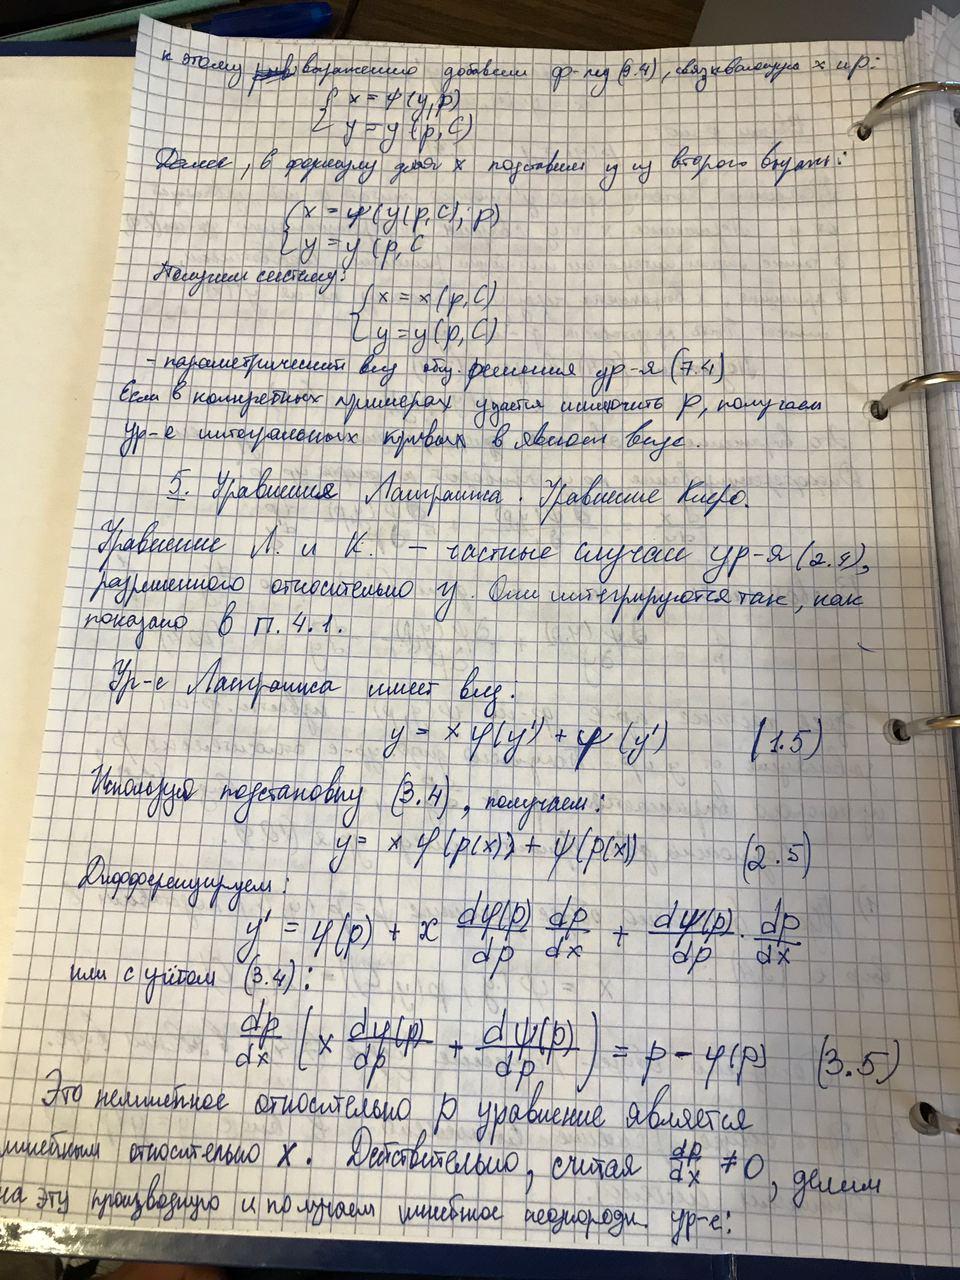 к этому выражению добавим ф-лу (3.4), связывающую x и p:
{ x = ψ(y, p)
y = y(p, C)
Далее, в формулу для x подставим y из второго выраж:
{ x = ψ(y(p, C), p)
y = y(p, C
Получаем систему:
{ x = x(p, C)
y = y(p, C)
- параметрический вид общ. решения ур-я (7.4)
Если в конкретных примерах удастся исключить p, получаем
ур-е интегральных кривых в явном виде.
5. Уравнения Лагранжа. Уравнение Клеро.
Уравнение Л. и К. – частные случаи ур-я (2.4),
разрешенного относительно y. Они интегрируются так, как
показано в п. 4.1.
Ур-е Лагранжа имеет вид:
y = x φ(y') + ψ(y') (1.5)
Используя подстановку (3.4), получаем:
y = x φ(p(x)) + ψ(p(x)) (2.5)
Дифференцируем:
y' = φ(p) + x dφ(p)/dp dp/dx + dψ(p)/dp · dp/dx
или с учётом (3.4):
dp/dx ( x dφ(p)/dp + dψ(p)/dp ) = p - φ(p) (3.5)
Это нелинейное относительно p уравнение является
линейным относительно x. Действительно, считая dp/dx ≠ 0, делим
на эту производную и получаем линейное неоднородн. ур-е: